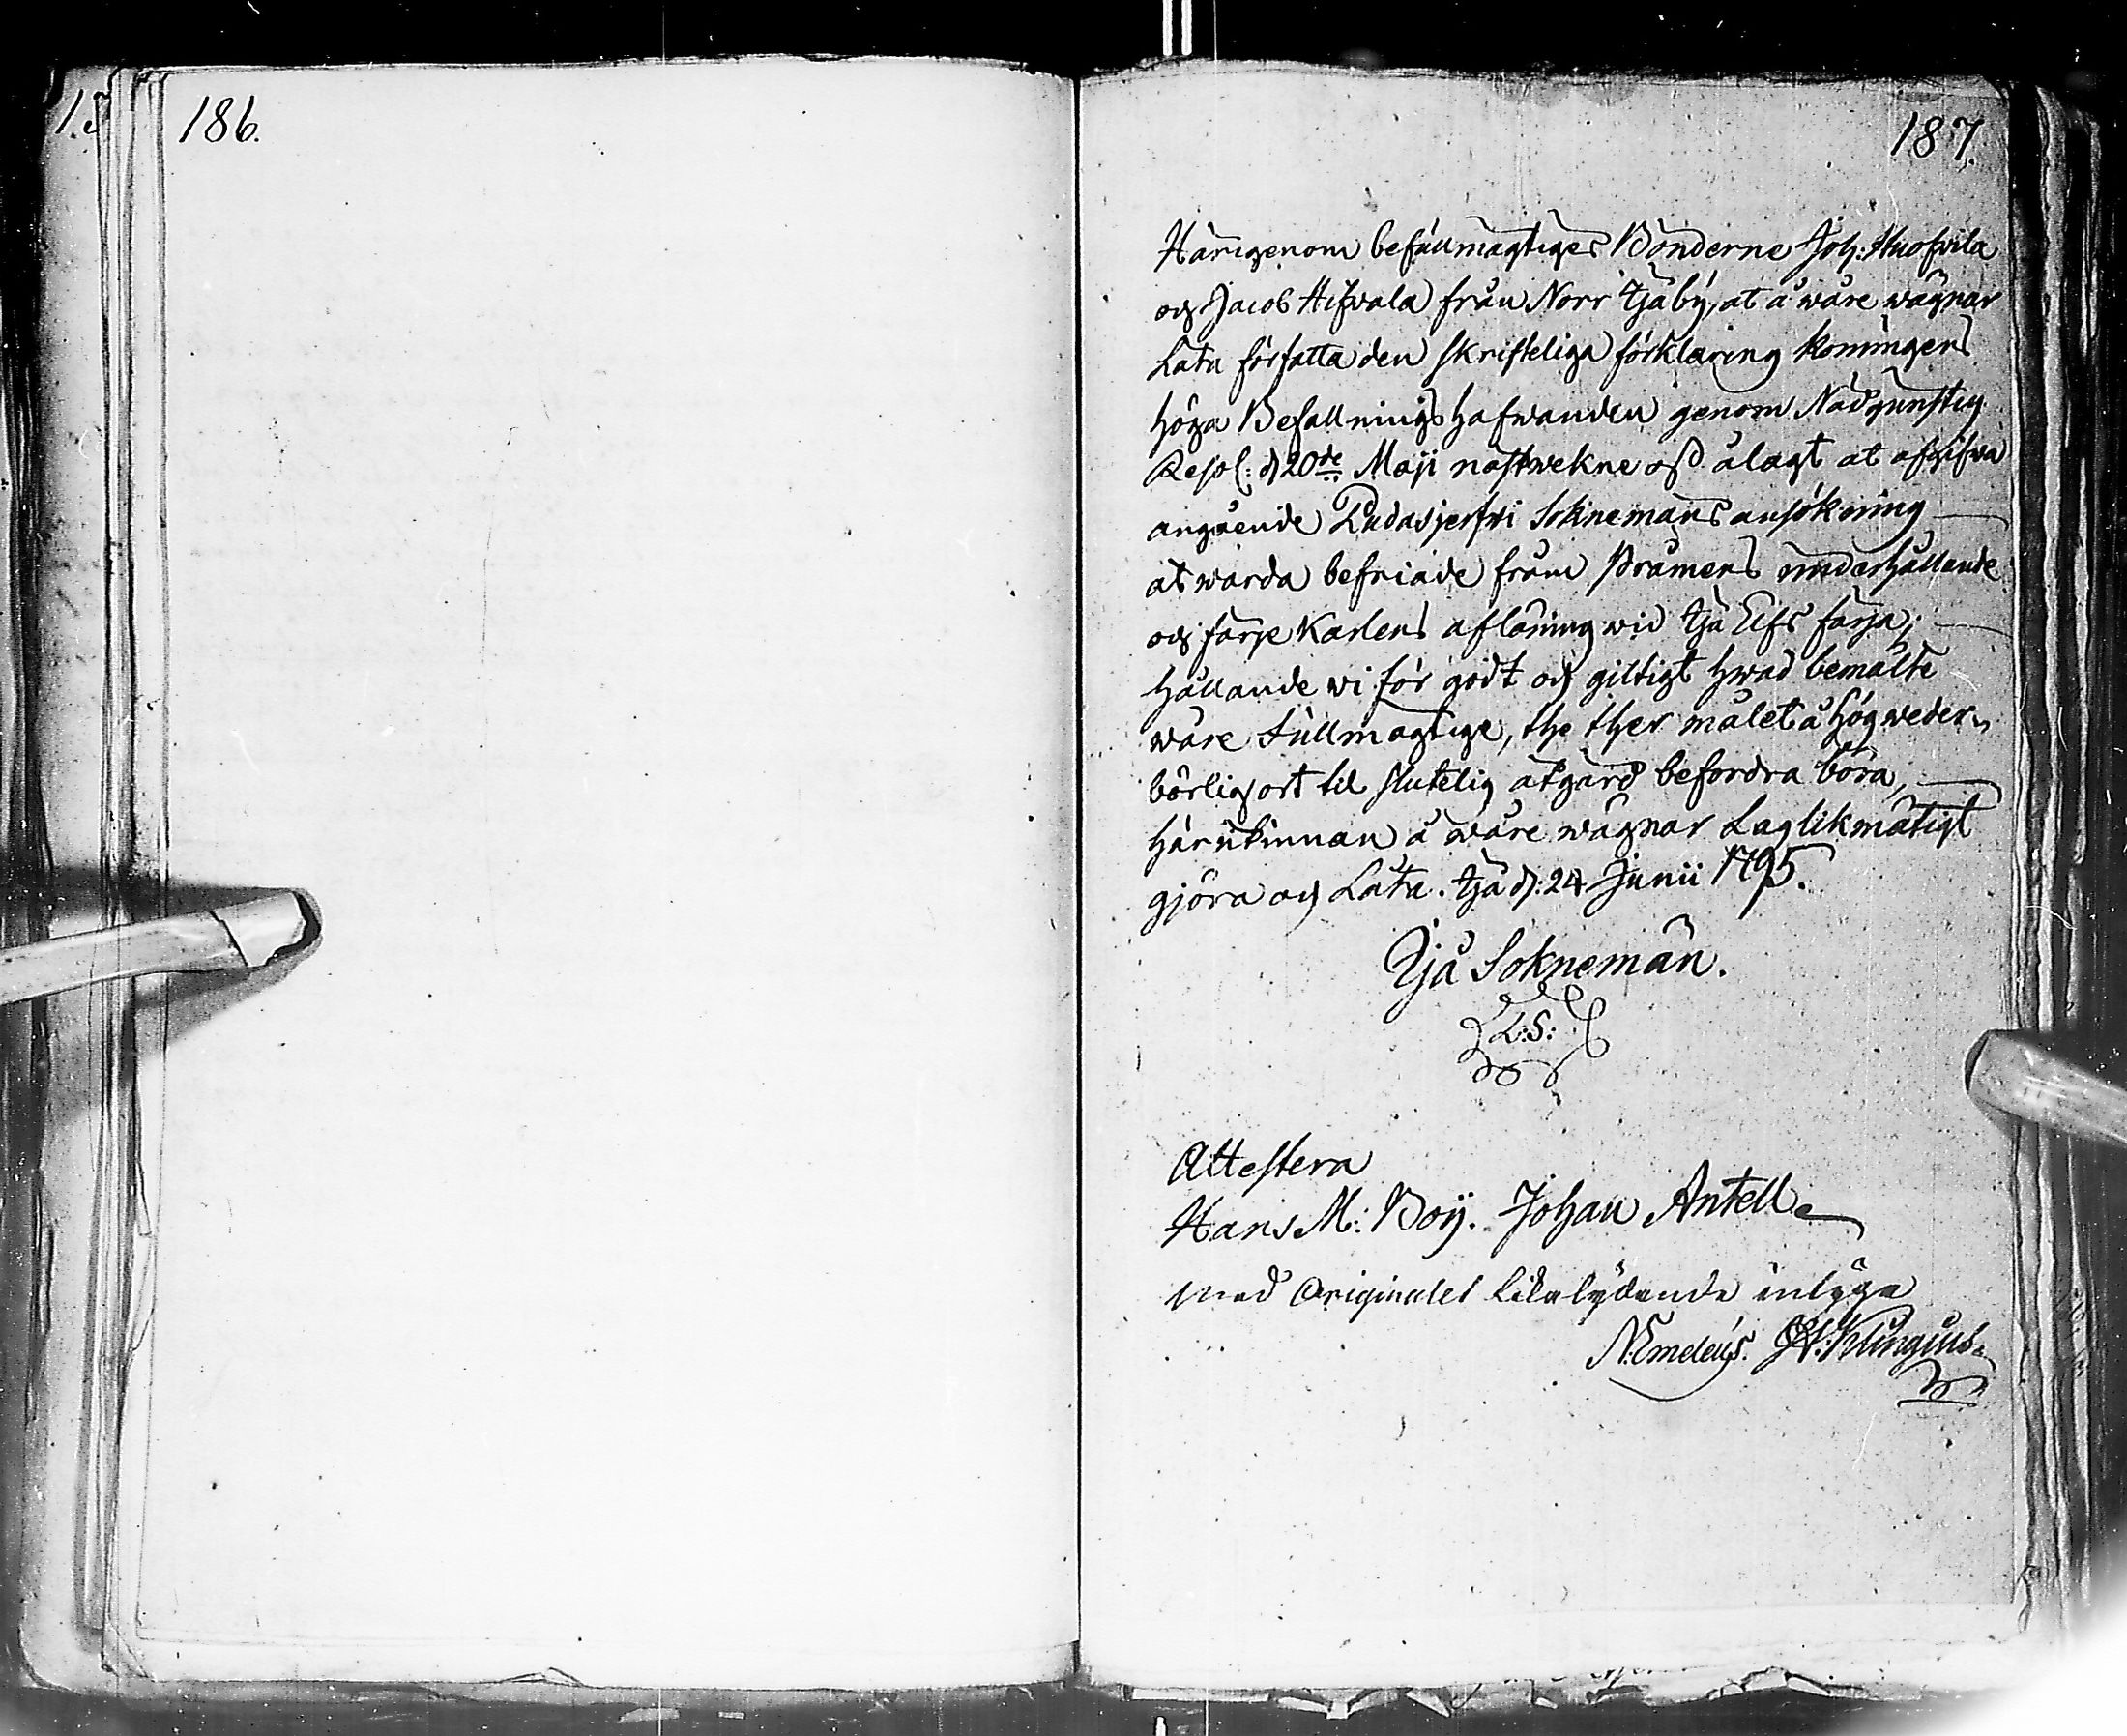 186.
187.
Härigenom befullmagtiges Bönderne Joh: Huofvila
och Jacob Hifvala från Norr Ijå by, at å wåre wägnar
Låta författa den skrifteliga förklaring Konungens
höga Befallningshafwanden genom Nådgunstig
Resol: d 20de Maji nästwekne oss ålagt at afgifwa
angående Pudasjerfwi Soknemäns ansökning
at warda befriade från Pråmens underhållande
och färje Karlens aflöning wid Ijå Elfs färja;
hållande wi för godt och giltigt hwad bemälte
wåre Fullmagtige, the ther målet å Hög weder-
börlig ort til slutelig åtgärd befordra böra,
härutinnan å wåre wägnar Laglikmätigt
gjöra och Låta. Ijå d: 24 Junii 1795.
Ijå Soknemän.
L:S:
Attestera
Hans M: Boij. Johan Antell
Med Originalet lika lydande intyga
N: Emeleus. Klingius